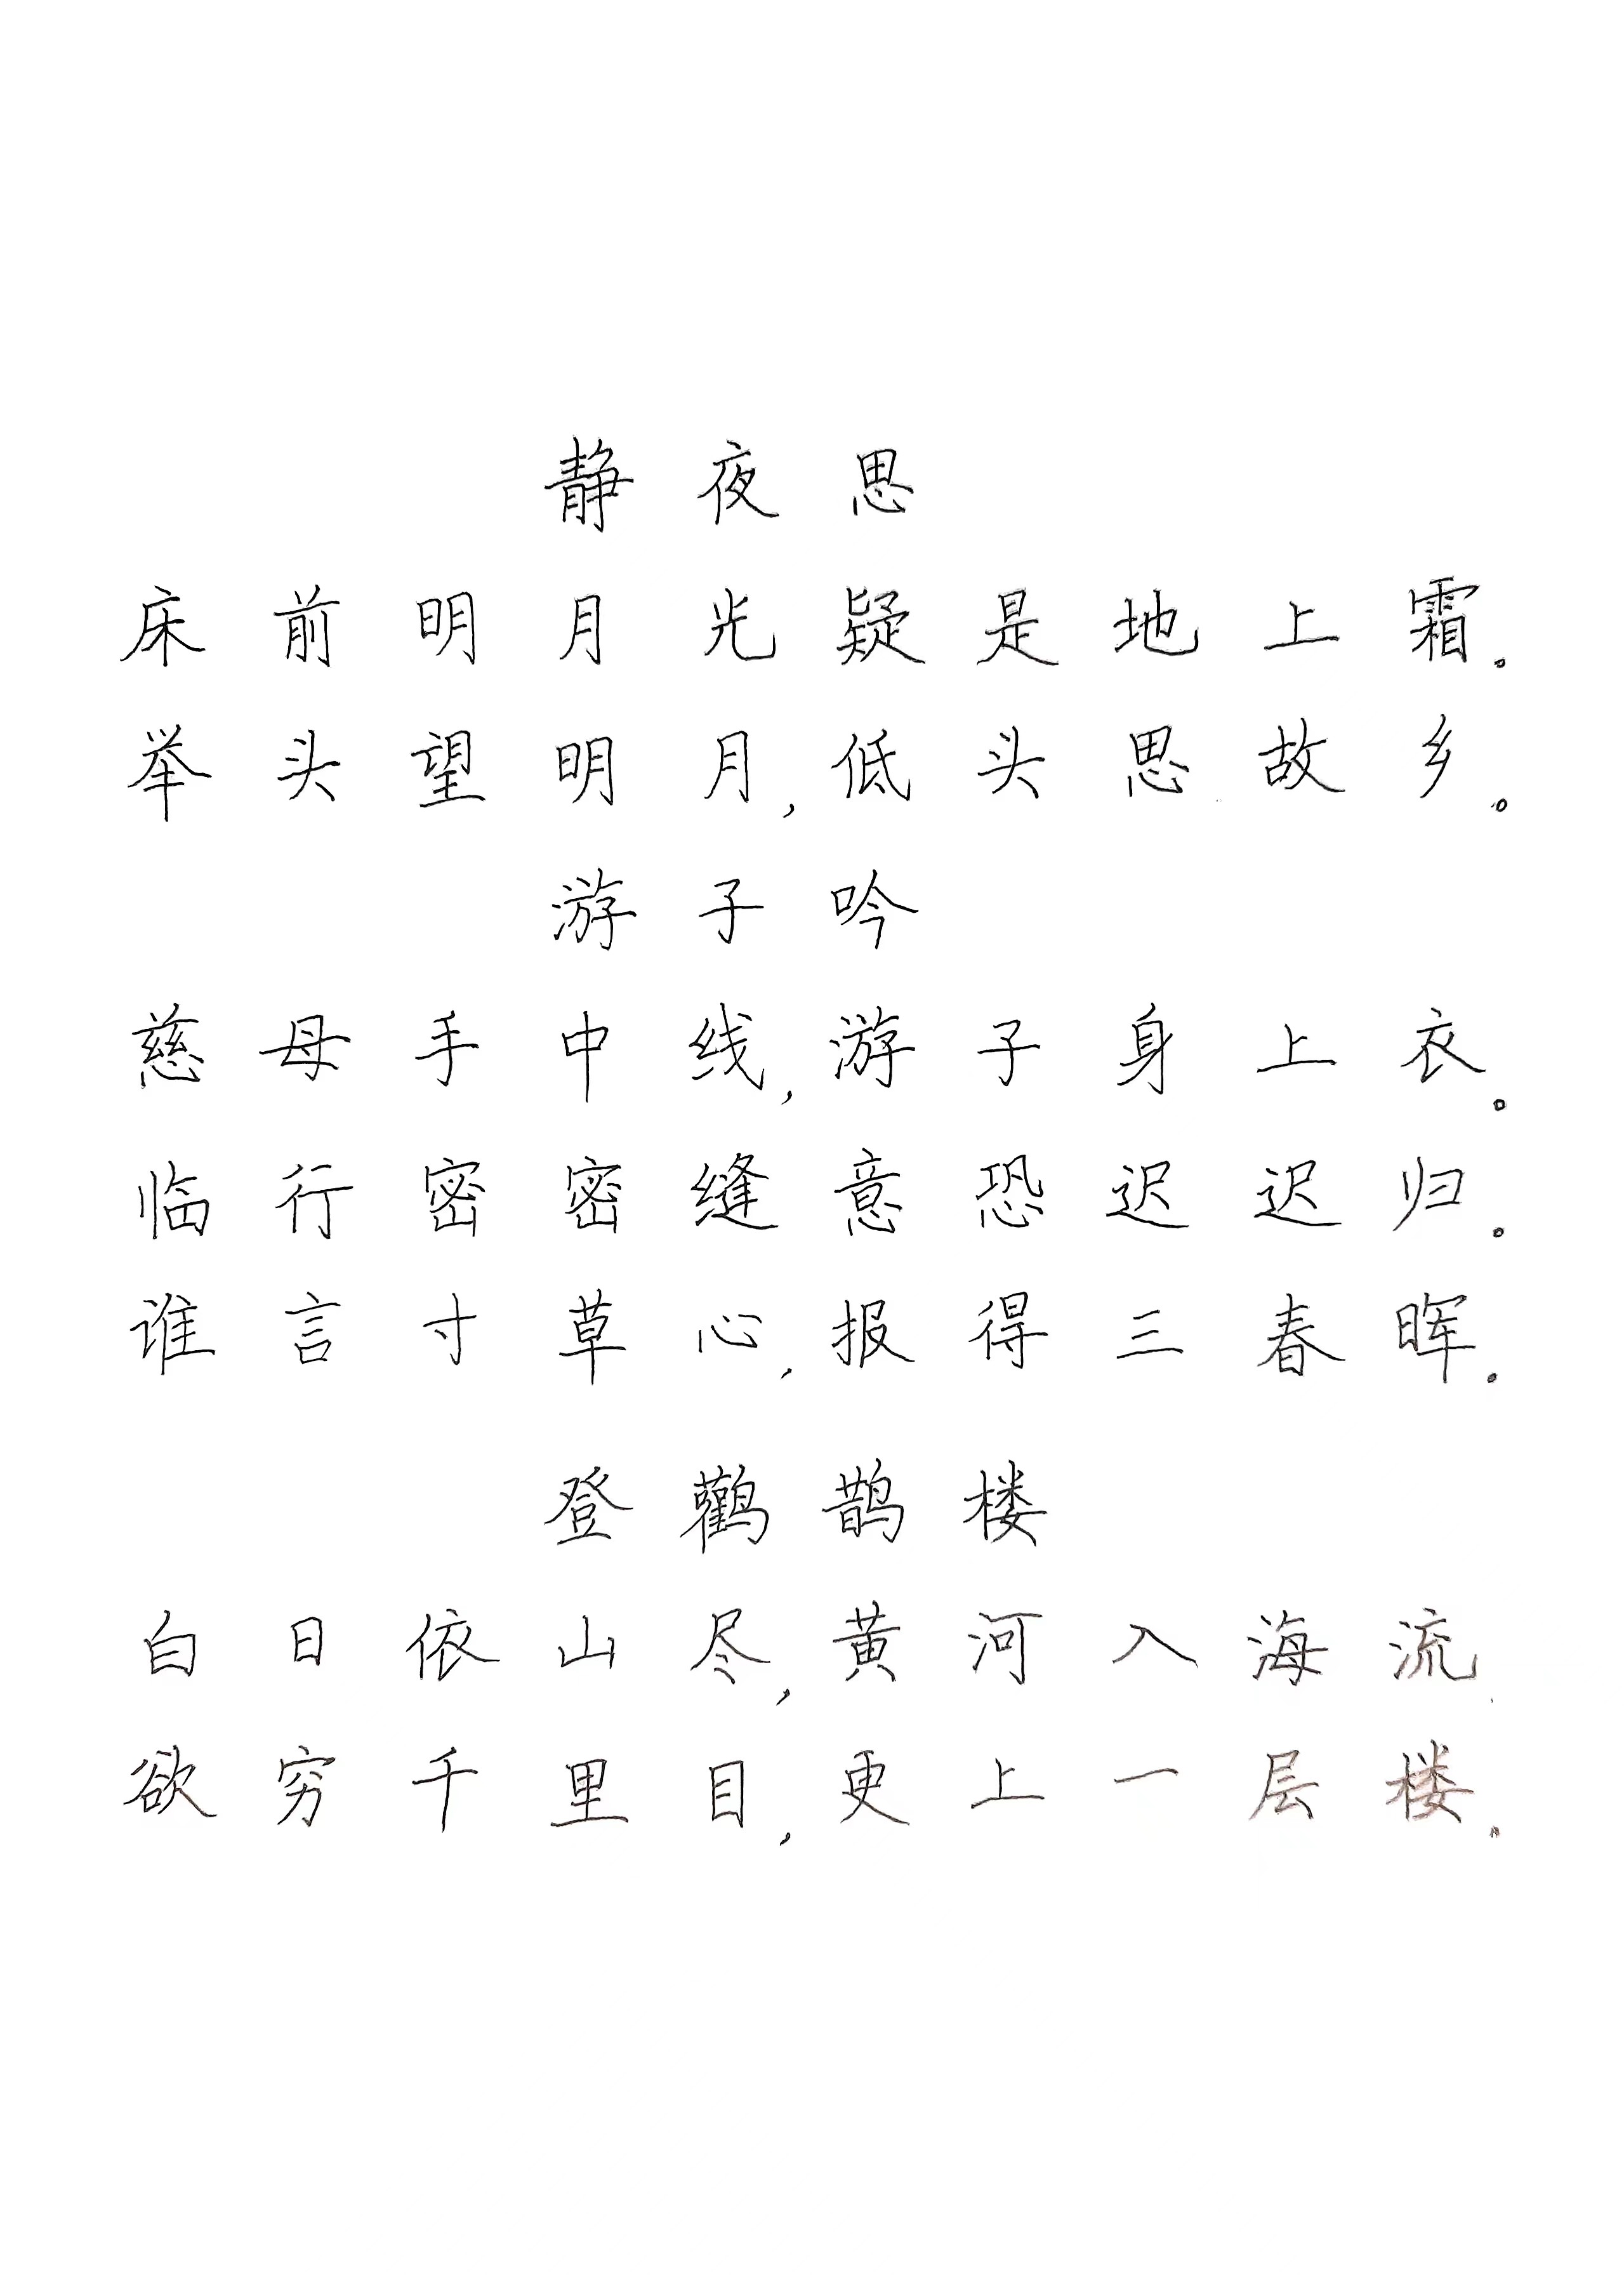 静夜思
床前明月光疑是地上霜。
举头望明月,低头思故乡。
游子吟
慈母手中线,游子身上衣。
临行密密缝意恐迟迟归。
谁言寸草心,报得三春晖.
登鹳鹊楼
白日依山尽,黄河入海流.
欲穷千里目,更上一层楼.